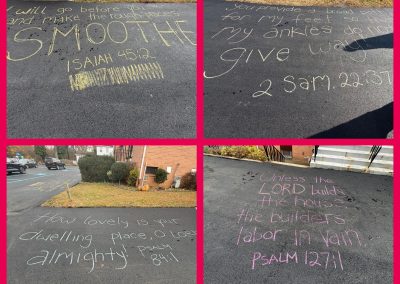 I will go before you
and make the rough places
SMOOTHE
ISAIAH 45:2
You provide a broad
for my feet so that
my ankles do not
give way
2 Sam. 22:37
How lovely is your
dwelling place, O Lord
almighty!
PSALM
84:1
Unless the
LORD builds
the house
the builders
labor in vain.
PSALM 127:1